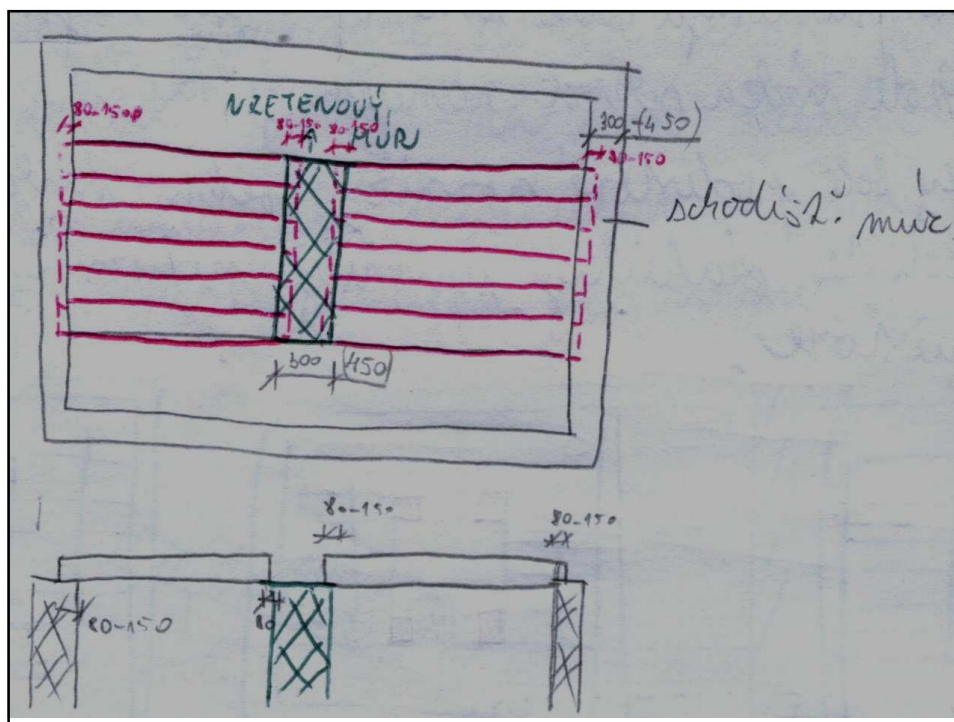 VŘETENOVÝ
MÚR
80-150
80-150
80-150
300 (450)
80-150
schodišť. mur.
300 (450)
80-150
80-150
80-150
80